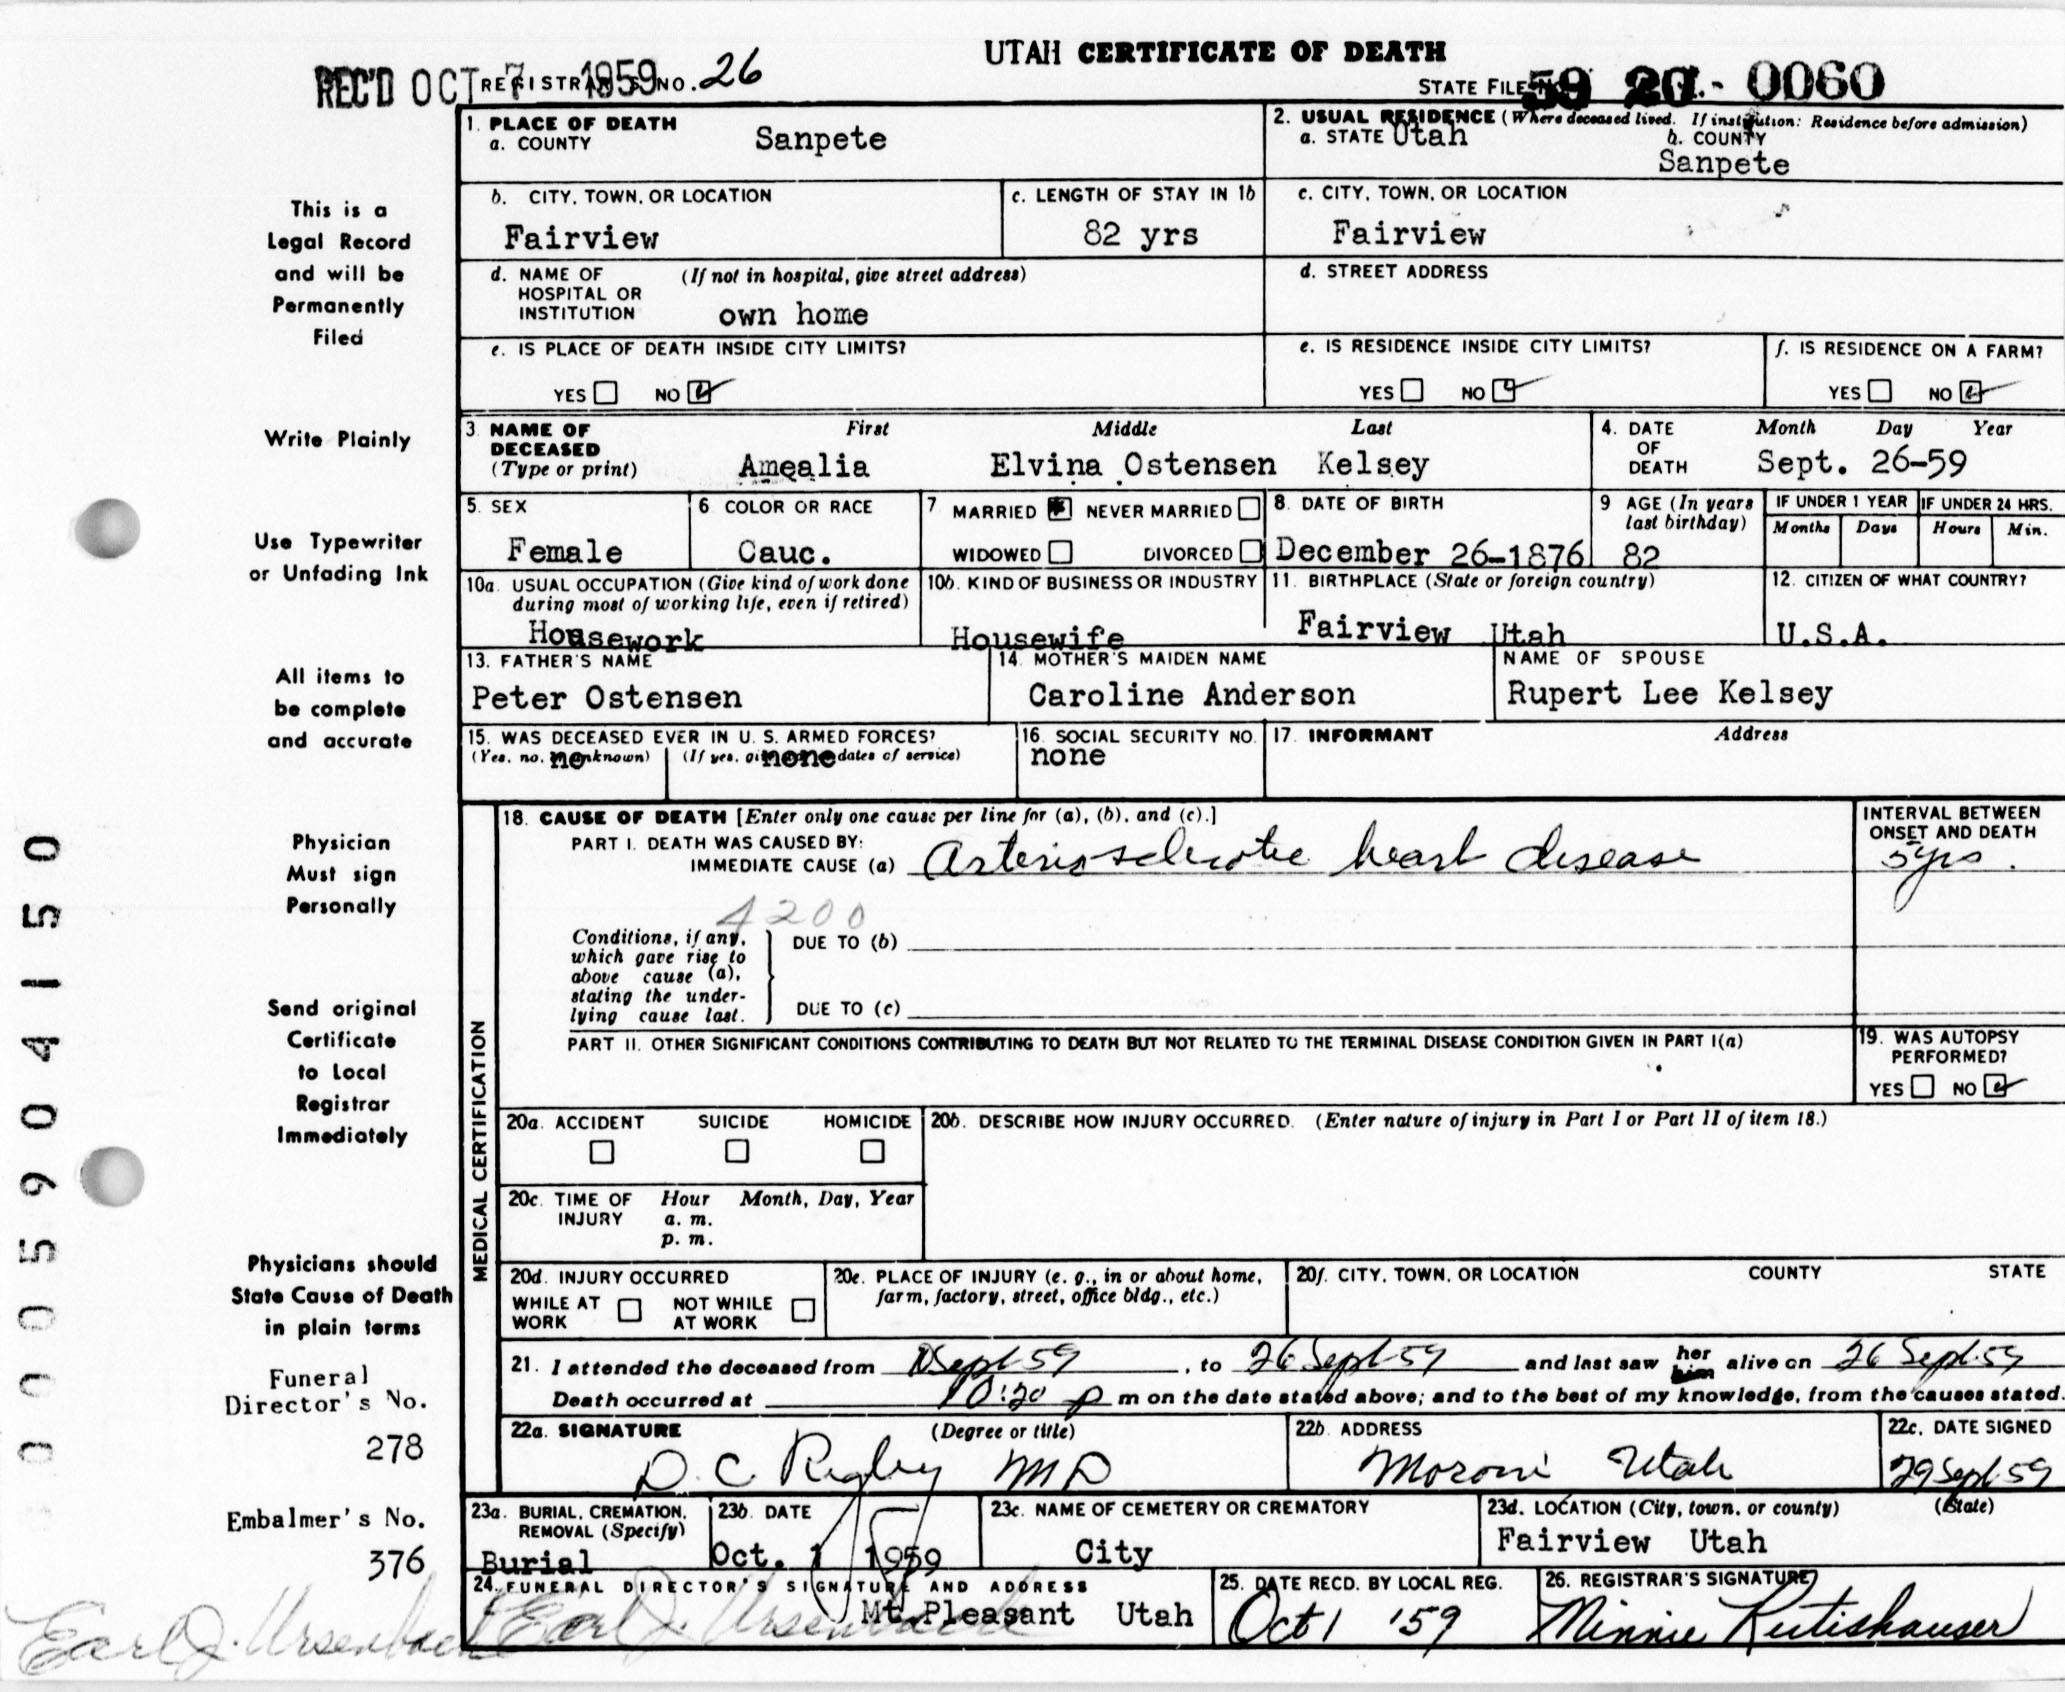 UTAH CERTIFICATE OF DEATH
REC'D OCT 7 1959 REGISTRAR'S NO. 26
STATE FILE 59 20 - 0060
1. PLACE OF DEATH
a. COUNTY Sanpete
2. USUAL RESIDENCE (Where deceased lived. If institution: Residence before admission)
a. STATE Utah b. COUNTY
Sanpete
b. CITY, TOWN, OR LOCATION
Fairview
c. LENGTH OF STAY IN 1b
82 yrs
c. CITY, TOWN, OR LOCATION
Fairview
d. NAME OF (If not in hospital, give street address)
HOSPITAL OR
INSTITUTION own home
d. STREET ADDRESS
e. IS PLACE OF DEATH INSIDE CITY LIMITS?
YES NO
e. IS RESIDENCE INSIDE CITY LIMITS?
YES NO
f. IS RESIDENCE ON A FARM?
YES NO
3. NAME OF DECEASED (Type or print)
First Middle Last
Amealia Elvina Ostensen Kelsey
4. DATE OF DEATH
Month Day Year
Sept. 26-59
5. SEX
Female
6 COLOR OR RACE
Cauc.
7 MARRIED NEVER MARRIED
WIDOWED DIVORCED
8. DATE OF BIRTH
December 26-1876
9 AGE (In years last birthday)
82
IF UNDER 1 YEAR IF UNDER 24 HRS.
Months Days Hours Min.
10a. USUAL OCCUPATION (Give kind of work done
during most of working life, even if retired)
Housework
10b. KIND OF BUSINESS OR INDUSTRY
Housewife
11. BIRTHPLACE (State or foreign country)
Fairview Utah
12. CITIZEN OF WHAT COUNTRY?
U.S.A.
13. FATHER'S NAME
Peter Ostensen
14. MOTHER'S MAIDEN NAME
Caroline Anderson
NAME OF SPOUSE
Rupert Lee Kelsey
15. WAS DECEASED EVER IN U. S. ARMED FORCES?
(Yes, no, unknown) no (If yes, dates of service) none
16. SOCIAL SECURITY NO.
none
17. INFORMANT Address
MEDICAL CERTIFICATION
18. CAUSE OF DEATH [Enter only one cause per line for (a), (b), and (c).]
INTERVAL BETWEEN
ONSET AND DEATH
PART I. DEATH WAS CAUSED BY:
IMMEDIATE CAUSE (a) Arteriosclerotic heart disease 5 yrs.
4200
Conditions, if any,
which gave rise to
above cause (a),
stating the under-
lying cause last.
DUE TO (b)
DUE TO (c)
PART II. OTHER SIGNIFICANT CONDITIONS CONTRIBUTING TO DEATH BUT NOT RELATED TO THE TERMINAL DISEASE CONDITION GIVEN IN PART I(a)
19. WAS AUTOPSY
PERFORMED?
YES NO
20a. ACCIDENT SUICIDE HOMICIDE
20b. DESCRIBE HOW INJURY OCCURRED. (Enter nature of injury in Part I or Part II of item 18.)
20c. TIME OF INJURY Hour Month, Day, Year
a. m.
p. m.
20d. INJURY OCCURRED
WHILE AT WORK NOT WHILE AT WORK
20e. PLACE OF INJURY (e. g., in or about home,
farm, factory, street, office bldg., etc.)
20f. CITY, TOWN, OR LOCATION COUNTY STATE
21. I attended the deceased from Sept 59, to 26 Sept 59 and last saw her him alive on 26 Sept 59
Death occurred at 10:20 p m on the date stated above; and to the best of my knowledge, from the causes stated.
22a. SIGNATURE (Degree or title)
D. C. Rigby MD
22b. ADDRESS
Moroni Utah
22c. DATE SIGNED
29 Sept 59
23a. BURIAL, CREMATION,
REMOVAL (Specify)
Burial
23b. DATE
Oct. 1 1959
23c. NAME OF CEMETERY OR CREMATORY
City
23d. LOCATION (City, town, or county) (State)
Fairview Utah
24. FUNERAL DIRECTOR'S SIGNATURE AND ADDRESS
Earl J. Ursenbach Mt. Pleasant Utah
25. DATE RECD. BY LOCAL REG.
Oct 1 '59
26. REGISTRAR'S SIGNATURE
Minnie Rutishauser
This is a
Legal Record
and will be
Permanently
Filed
Write Plainly
Use Typewriter
or Unfading Ink
All items to
be complete
and accurate
Physician
Must sign
Personally
Send original
Certificate
to Local
Registrar
Immediately
Physicians should
State Cause of Death
in plain terms
Funeral
Director's No.
278
Embalmer's No.
376
Earl J. Ursenbach
0005904150